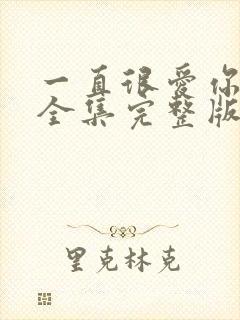 一直很爱你
全集完整版
里克林克